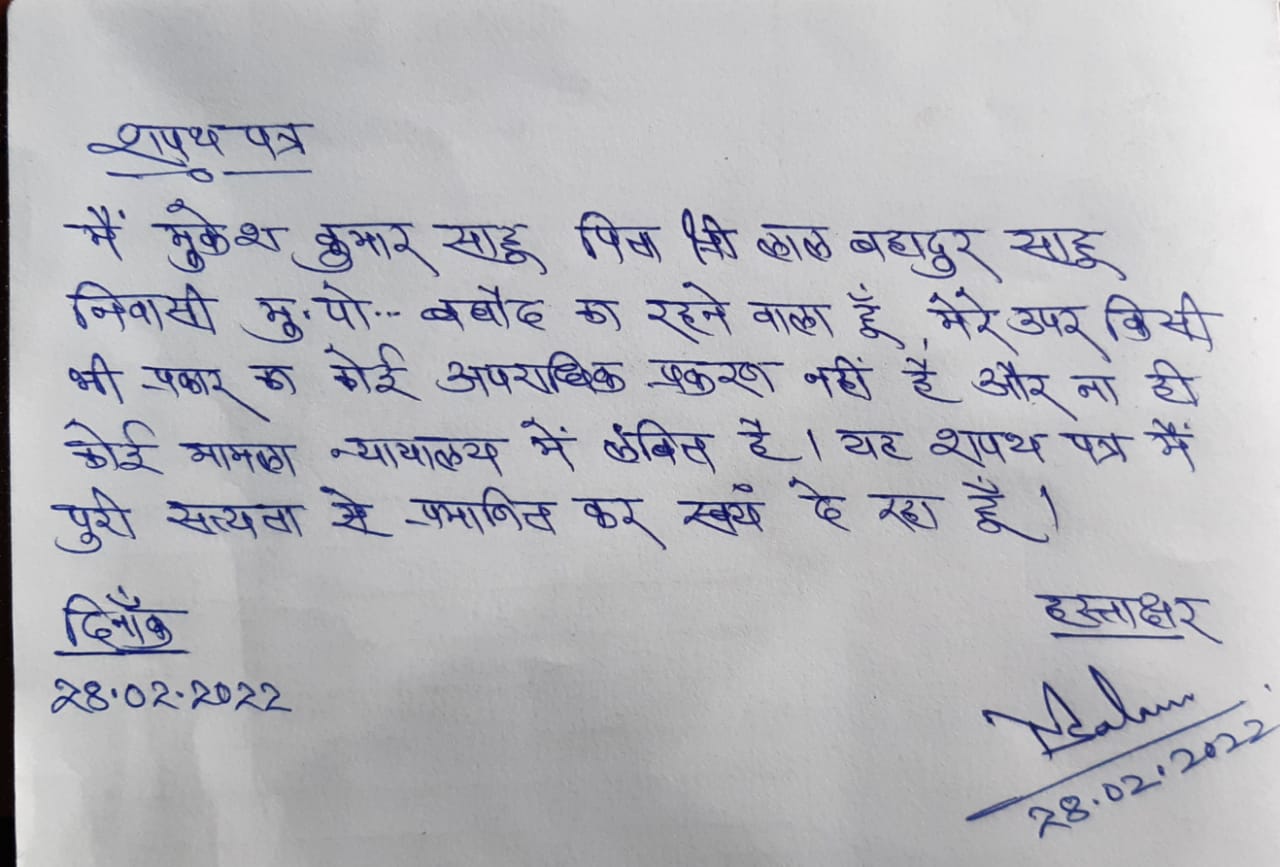 शपथ पत्र
मैं मुकेश कुमार साहू पिता श्री लाल बहादुर साहू
निवासी मु. पो... का रहने वाला हूँ, मेरे उपर किसी
भी प्रकार का कोई अपराधिक प्रकरण नहीं है और ना ही
कोई मामला न्यायालय में लंबित है। यह शपथ पत्र मैं
पुरी सत्यता से प्रमाणित कर स्वयं दे रहा हूँ।
दिनाँक
28.02.2022
हस्ताक्षर
28.02.2022